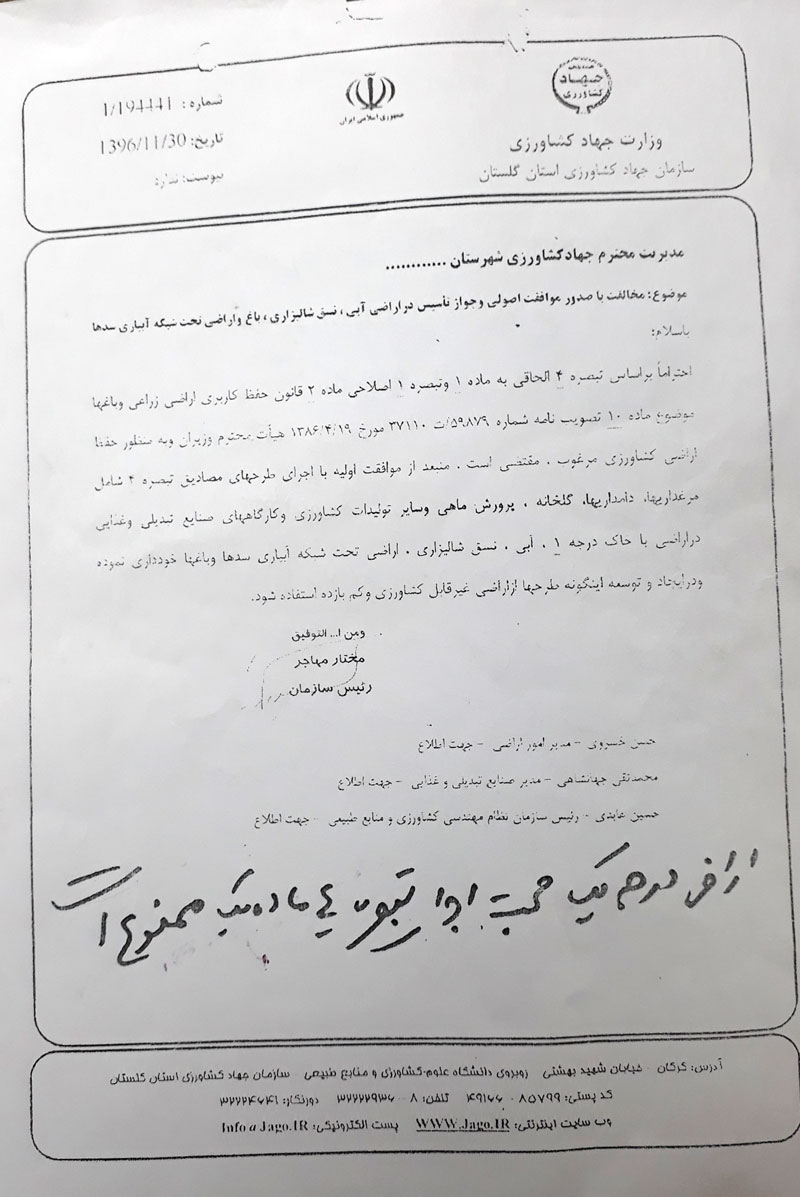 جهاد
کشاورزی
جمهوری اسلامی ایران
وزارت جهاد کشاورزی
سازمان جهاد کشاورزی استان گلستان
شماره : 1/194441
تاریخ: 1396/11/30
پیوست: ندارد
مدیریت محترم جهادکشاورزی شهرستان ............
موضوع: مخالفت با صدور موافقت اصولی وجواز تأسیس دراراضی آبی ، نسق شالیزاری ، باغ واراضی تحت شبکه آبیاری سدها
باسلام:
احتراماً براساس تبصره ۴ الحاقی به ماده ۱ وتبصره ۱ اصلاحی ماده ۲ قانون حفظ کاربری اراضی زراعی وباغها
موضوع ماده ۱۰ تصویب نامه شماره ۵۹۸۷۹/ت ۳۷۱۱۰ مورخ ۱۳۸۶/۴/۱۹ هیأت محترم وزیران وبه منظور حفظ
اراضی کشاورزی مرغوب . مقتضی است . منبعد از موافقت اولیه با اجرای طرحهای مصادیق تبصره ۴ شامل
مرغداریها، دامداریها، گلخانه ، پرورش ماهی وسایر تولیدات کشاورزی وکارگاههای صنایع تبدیلی وغذایی
دراراضی با خاک درجه ۱ ، آبی ، نسق شالیزاری . اراضی تحت شبکه آبیاری سدها وباغها خودداری نموده
ودرایجاد و توسعه اینگونه طرحها ازاراضی غیرقابل کشاورزی وکم بازده استفاده شود.
ومن ا... التوفیق
مختار مهاجر
رئیس سازمان
حسن خسروی – مدیر امور اراضی – جهت اطلاع
محمدتقی جهانشاهی – مدیر صنایع تبدیلی و غذایی – جهت اطلاع
حسین عابدی – رئیس سازمان نظام مهندسی کشاورزی و منابع طبیعی – جهت اطلاع
اراضی درجه یک جهت اجرا تبصره ماده یک ممنوع است
آدرس: گرگان – خیابان شهید بهشتی روبروی دانشگاه علوم کشاورزی و منابع طبیعی – سازمان جهاد کشاورزی استان گلستان
کد پستی: ۸۵۷۹۹ - ۴۹۱۶۶ تلفن: ۸ - ۳۲۲۲۲۹۳۶ دورنگار: ۳۲۲۲۴۶۴۱
وب سایت اینترنتی: WWW.Jago.IR پست الکترونیکی: Info@Jago.IR